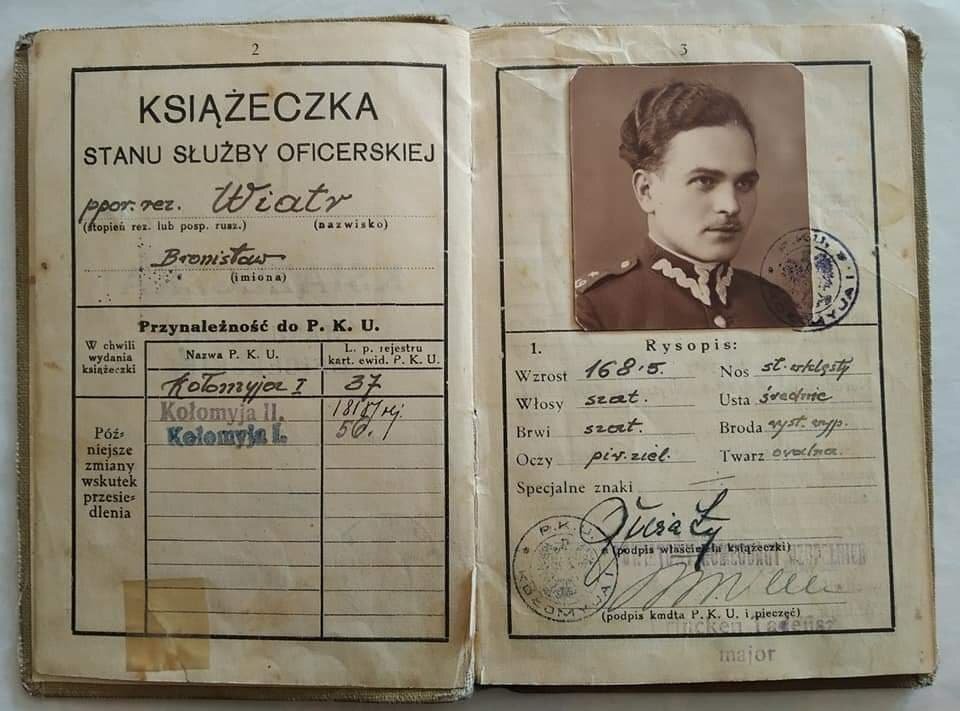 2
KSIĄŻECZKA
STANU SŁUŻBY OFICERSKIEJ
ppor. rez. Wiatr
(stopień rez. lub posp. rusz.) (nazwisko)
Bronisław
(imiona)
Przynależność do P. K. U.
W chwili wydania książeczki
Nazwa P. K. U.
L. p. rejestru kart. ewid. P. K. U.
Kołomyja I 37
Kołomyja II.
Kołomyja I. 56.
Póź-
niejsze
zmiany
wskutek
przesie-
dlenia
3
P.K.U.
1. Rysopis:
Wzrost 168.5. Nos
Włosy szat. Usta średnie
Brwi szat. Broda
Oczy piw. ziel. Twarz owalna.
Specjalne znaki
P.K.U.
(podpis właściciela książeczki)
(podpis kmdta P. K. U. i pieczęć)
major